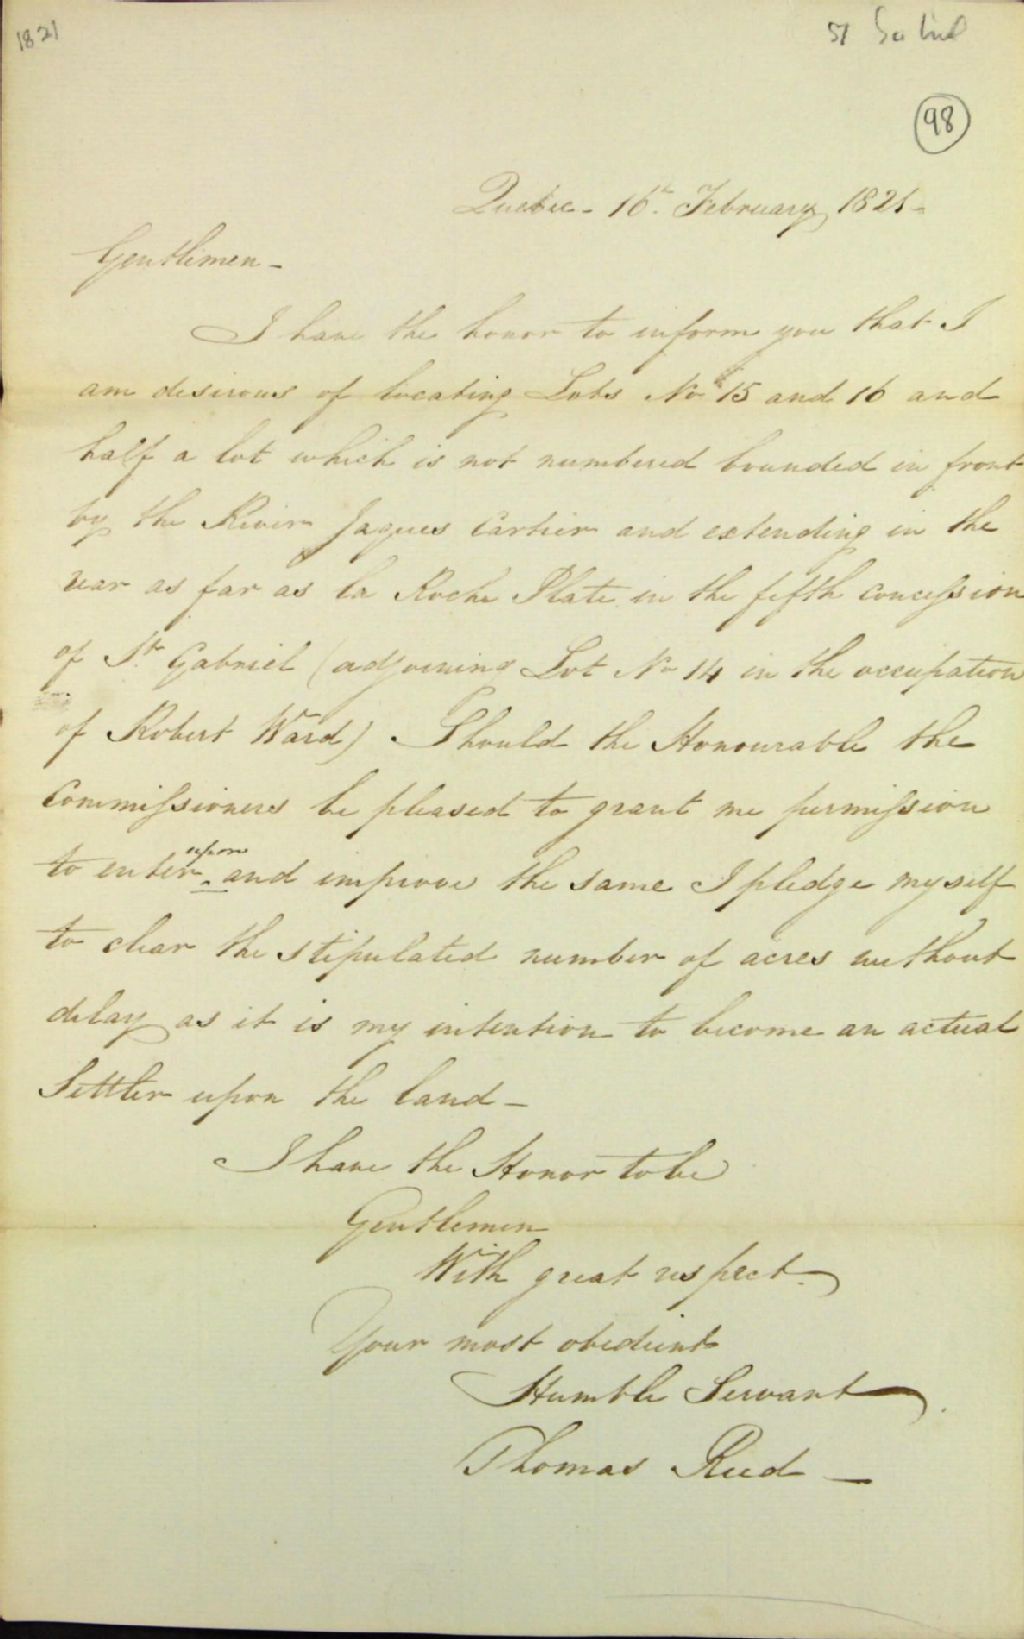 1821
St Gabriel
98
Quebec - 16th February 1821 -
Gentlemen -
I have the honor to inform you that I
am desirous of locating Lots No 15 and 16 and
half a lot which is not numbered bounded in front
by the River Jaques Cartier and extending in the
rear as far as la Roche Plate in the fifth concession
of St. Gabriel (adjoining Lot No 14 in the occupation
of Robert Ward) Should the Honourable the
Commissioners be pleased to grant me permission
to enter upon and improve the same I pledge myself
to clear the stipulated number of acres without
delay as it is my intention to become an actual
Settler upon the land -
I have the Honor to be
Gentlemen
With great respect
Your most obedient
Humble Servant
Thomas Reed -